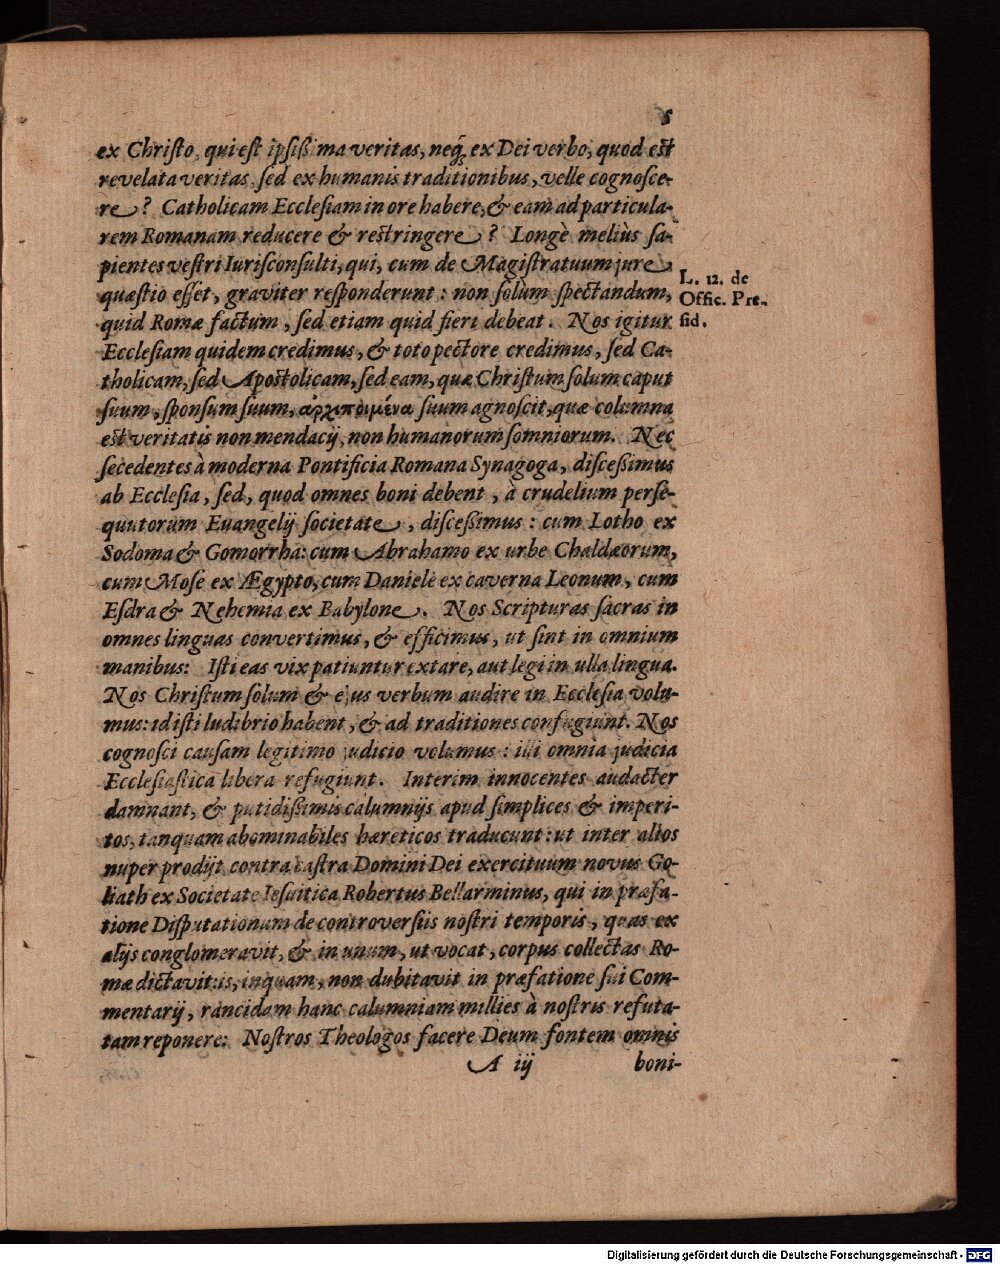 5
ex Christo, qui est ipsissima veritas, neq́; ex Dei verbo, quod est
revelata veritas, sed ex humanis traditionibus, velle cognosce-
re? Catholicam Ecclesiam in ore habere, & eam ad particula-
rem Romanam reducere & restringere? Longè meliùs sa-
pientes vestri Iurisconsulti, qui, cum de Magistratuum jure
quæstio esset, graviter responderunt: non solùm spectandum,
quid Romæ factum, sed etiam quid fieri debeat. Nos igitur
Ecclesiam quidem credimus, & toto pectore credimus, sed Ca-
tholicam, sed Apostolicam, sed eam, quæ Christum solum caput
suum, sponsum suum, ἀρχιποιμένα suum agnoscit, quæ columna
est veritatis non mendacij, non humanorum somniorum. Nec
secedentes à moderna Pontificia Romana Synagoga, discessimus
ab Ecclesia, sed, quod omnes boni debent, à crudelium perse-
quutorum Euangelij societate, discessimus: cum Lotho ex
Sodoma & Gomorrha: cum Abrahamo ex urbe Chaldæorum,
cum Mose ex Ægypto, cum Daniele ex caverna Leonum, cum
Esdra & Nehemia ex Babylone. Nos Scripturas sacras in
omnes linguas convertimus, & efficimus, ut sint in omnium
manibus: Isti eas vix patiuntur extare, aut legi in ulla lingua.
Nos Christum solum & ejus verbum audire in Ecclesia volu-
mus: id isti ludibrio habent, & ad traditiones confugiunt. Nos
cognosci causam legitimo judicio volumus: illi omnia judicia
Ecclesiastica libera refugiunt. Interim innocentes audacter
damnant, & putidissimis calumnijs apud simplices & imperi-
tos, tanquam abominabiles hæreticos traducunt: ut inter alios
nuper prodijt contra castra Domini Dei exercituum novus Go-
liath ex Societate Iesuitica Robertus Bellarminus, qui in præfa-
tione Disputationum de controversiis nostri temporis, quas ex
alijs conglomeravit, & in unum, ut vocat, corpus collectas Ro-
mæ dictavit: is, inquam, non dubitavit in præfatione sui Com-
mentarij, rancidam hanc calumniam millies à nostris refuta-
tam reponere: Nostros Theologos facere Deum fontem omnis
A iij boni-
L. 12. de
Offic. Præ-
sid.
Digitalisierung gefördert durch die Deutsche Forschungsgemeinschaft - DFG